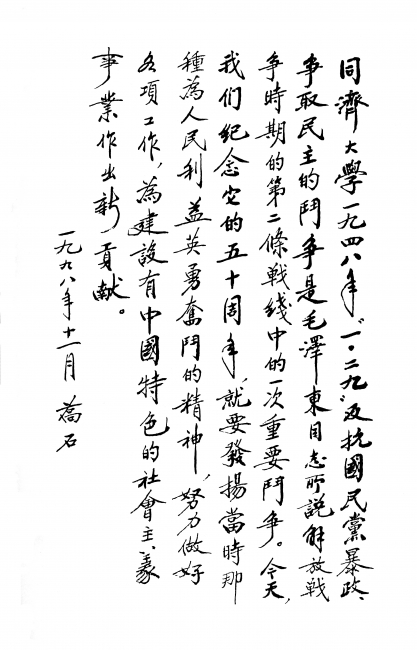 同濟大學一九四八年"一·二九"反抗國民黨暴政、
爭取民主的鬥爭是毛澤東同志所説解放戰
爭時期的第二條戰綫中的一次重要鬥爭。今天，
我们纪念它的五十周年，就要發揚當時那
種為人民利益英勇奮鬥的精神，努力做好
各項工作，為建設有中國特色的社會主義
事業作出新貢獻。
一九九八年十一月 喬石